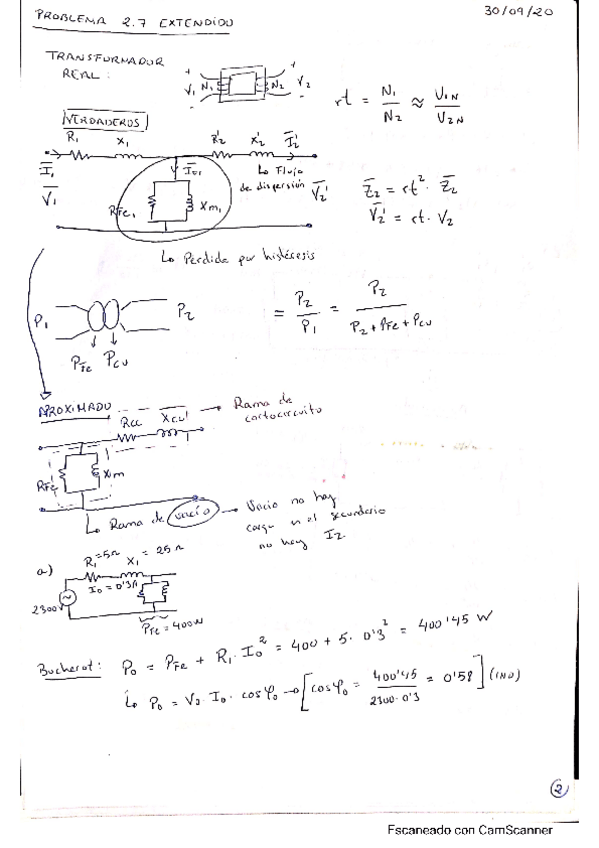 PROBLEMA 2.7 EXTENDIDO
30/09/20
TRANSFORMADOR
REAL:
V₁ N₁ N₂ V₂
+ +
- -
rt = N₁/N₂ ≈ V₁N/V₂N
VERDADEROS
R₁ X₁ R₂' X₂' I₂'
I₁ I₀₁
V₁ V₂'
↳ Flujo
de dispersión
RFe₁ Xm₁
Z₂ = rt² · Z₂
V₂' = rt · V₂
↳ Perdida por histéresis
P₁ P₂
PFe PCU
= P₂/P₁ = P₂/(P₂ + PFe + PCU)
APROXIMADO
Rcc Xcc₁' → Rama de
cortocircuito
RFe Xm
↳ Rama de vacío → Vacio no hay
carga en el secundario
no hay I₂
a)
R₁ = 5Ω X₁ = 25 Ω
I₀ = 0'3A
2300V
PFe = 400W
Bucherot: P₀ = PFe + R₁ · I₀² = 400 + 5 · 0'3² = 400'45 W
↳ P₀ = V₀ · I₀ · cosφ₀ → [cosφ₀ = 400'45/(2300·0'3) = 0'58] (IND)
2
Escaneado con CamScanner